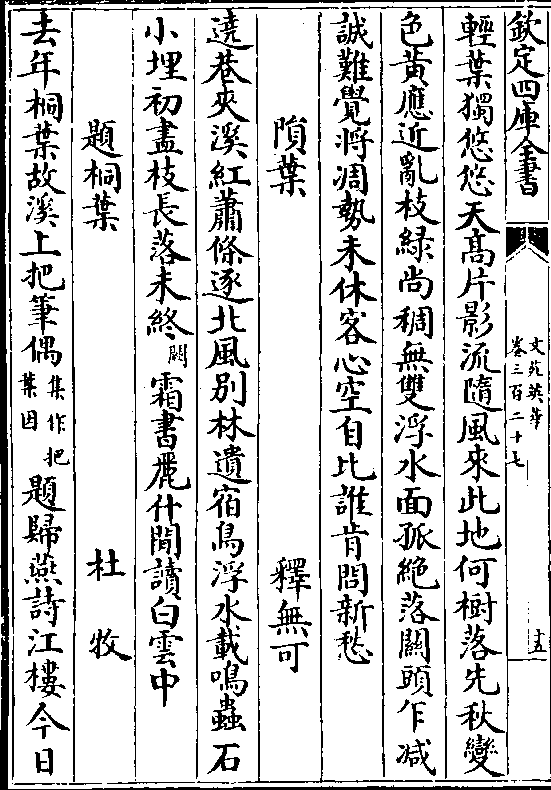 欽定四庫全書
文苑英華
卷三百二十七
十五
輕葉獨悠悠天髙片影流隨風來此地何樹落先秋變
色黄應近亂枝緑尚稠無雙浮水面孤絶落闗頭乍减
誠難覺將凋勢未休客心空自比誰肯問新愁
隕葉 釋無可
遶巷夾溪紅蕭條逐北風别林遺宿鳥浮水載鳴蟲石
小埋初盡枝長落未終闕霜書麗什閒讀白雲中
題桐葉 杜牧
去年桐葉故溪上把筆偶集作把葉因題歸燕詩江樓今日